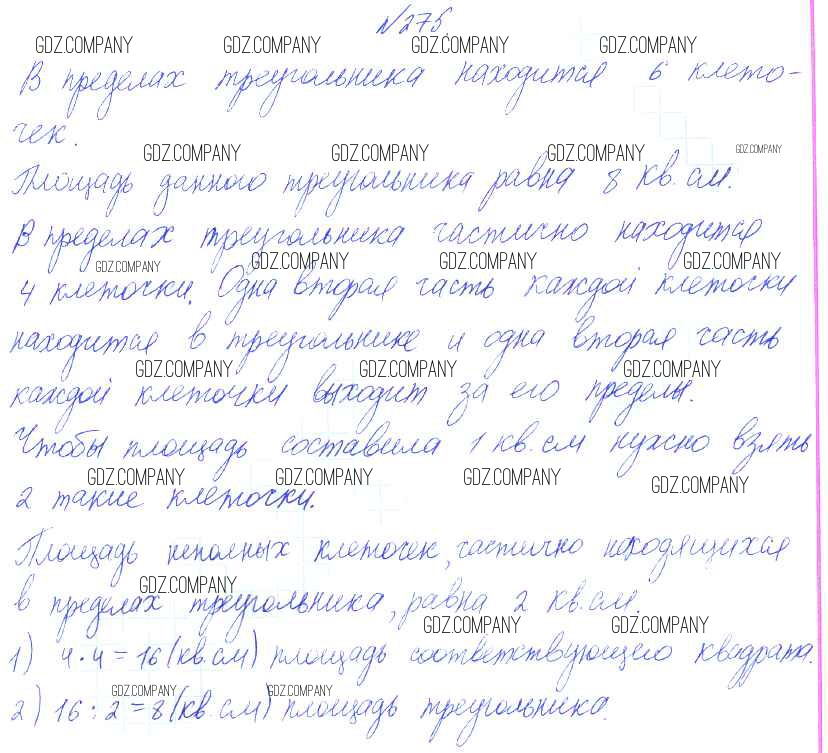 №275.
GDZ.COMPANY GDZ.COMPANY GDZ.COMPANY GDZ.COMPANY
В пределах треугольника находится 6 клето-
чек.
GDZ.COMPANY GDZ.COMPANY GDZ.COMPANY GDZ.COMPANY
Площадь данного треугольника равна 8 кв. см.
В пределах треугольника частично находится
GDZ.COMPANY GDZ.COMPANY GDZ.COMPANY GDZ.COMPANY
4 клеточки. Одна вторая часть каждой клеточки
находится в треугольнике и одна вторая часть
GDZ.COMPANY GDZ.COMPANY GDZ.COMPANY
каждой клеточки выходит за его пределы.
Чтобы площадь составила 1 кв. см нужно взять
GDZ.COMPANY GDZ.COMPANY GDZ.COMPANY GDZ.COMPANY
2 такие клеточки.
Площадь неполных клеточек, частично находящихся
GDZ.COMPANY
в пределах треугольника, равна 2 кв. см.
GDZ.COMPANY GDZ.COMPANY
1) 4·4=16 (кв. см) площадь соответствующего квадрата.
GDZ.COMPANY GDZ.COMPANY
2) 16:2=8 (кв. см) площадь треугольника.